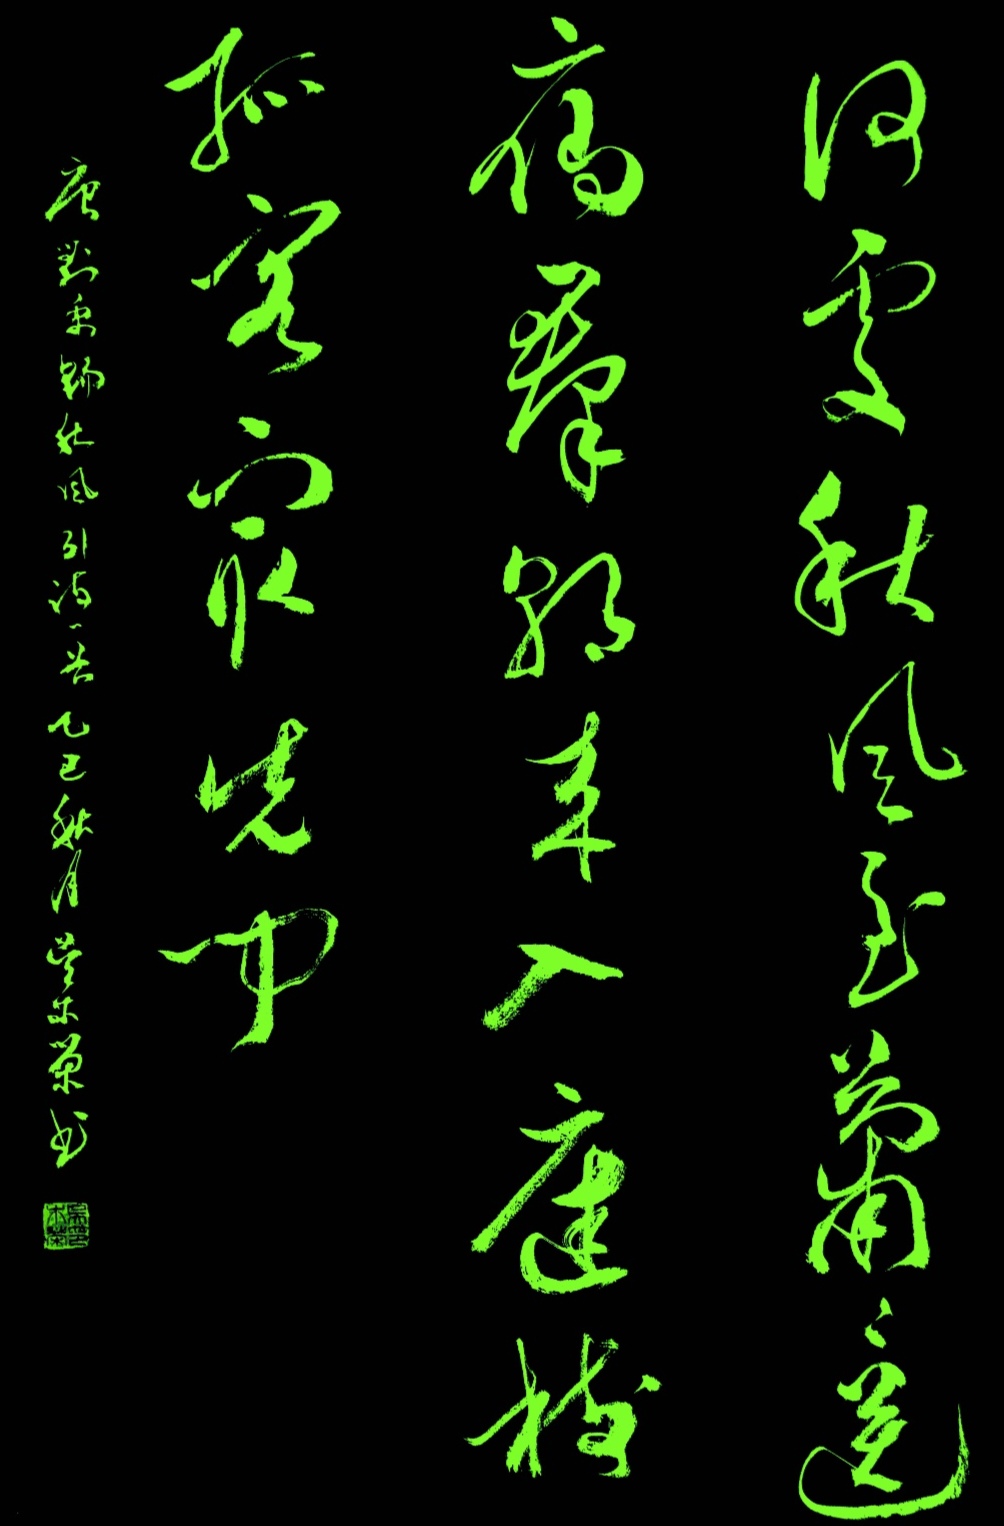 何處秋風至蕭〻送
雁羣朝來入庭樹
孤客最先聞
唐劉禹錫秋風引詩一首乙巳秋月吳木榮書